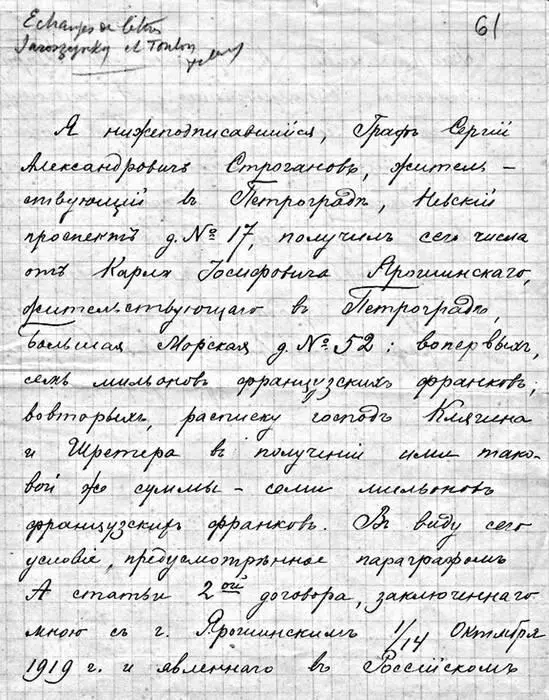 Echanges de lettres
61
Jaroszynsky et Toulon
Я нижеподписавшійся, Графъ Сергій
Александровичъ Строгановъ, житель-
ствующій въ Петроградѣ, Невскій
проспектъ д. № 17, получилъ сего числа
отъ Карла Іосифовича Ярошинскаго,
жительствующаго въ Петроградѣ,
Большая Морская д. № 52: вопервыхъ,
семь мильоновъ французскихъ франковъ;
вовторыхъ, расписку господъ Клягина
и Шретера въ полученіи ими тако-
вой же суммы - семи мильоновъ
французскихъ франковъ. Въ виду сего
условіе, предусмотрѣнное параграфомъ
А статьи 2ой договора, заключеннаго
мною съ г. Ярошинскимъ 1/14 Октября
1919 г. и явленнаго въ Россійскомъ